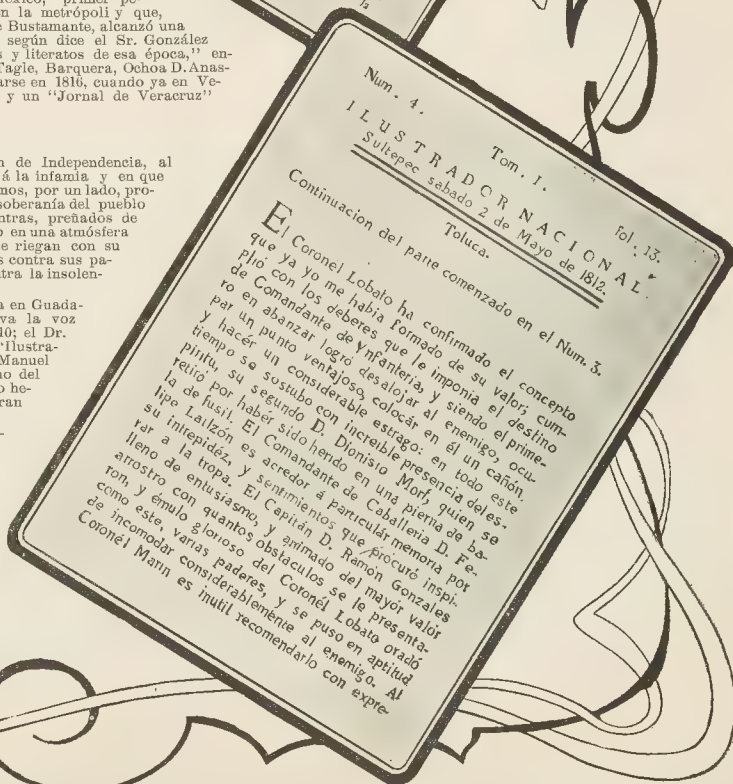 éxico, primer pe-
en la metrópoli y que,
e Bustamante, alcanzó una
según dice el Sr. González
s y literatos de esa época," en-
Tagle, Barquera, Ochoa D. Anas-
arse en 1816, cuando ya en Ve-
y un "Jornal de Veracruz"
n de Independencia, al
á la infamia y en que
mos, por un lado, pro-
soberanía del pueblo
ntras, preñados de
o en una atmósfera
e riegan con su
s contra sus pa-
tra la insolen-
a en Guada-
va la voz
10; el Dr.
"Ilustra-
Manuel
no del
o he-
ran
la
Num. 4. Tom. I. Fol. 13.
ILUSTRADOR NACIONAL.
Sultepec sabado 2 de Mayo de 1812.
Toluca.
Continuacion del parte comenzado en el Num. 3.
El Coronél Lobato ha confirmado el concepto
que ya yo me habia formado de su valor; cum-
plió con los deberes que le imponia el destino
de Comandante de Ynfanteria, y siendo el prime-
ro en abanzar logró desalojar al enemigo, ocu-
par un punto ventajoso, colocár en él un cañón,
y hacér un considerable estrago: en todo este
tiempo se sostubo con increible presencia del es-
piritu, su segundo D. Dionisio Morf, quien se
retiró por habér sido herido en una pierna de ba-
la de fusil. El Comandante de Caballeria D. Fe-
lipe Lailzón es acredor á particulár memoria por
su intrepidéz, y sentimientos que procuró inspi-
rar a la tropa. El Capitán D. Ramón Gonzales
lleno de entusiasmo, y animado del mayór valór
arrostro con quantos obstaculos se le presenta-
ron, y émulo glorioso del Coronél Lobato oradó
como este, varias paderes, y se puso en aptitud
de incomodar considerablemente al enemigo. Al
Coronél Marin es inutil recomendarlo con expre-